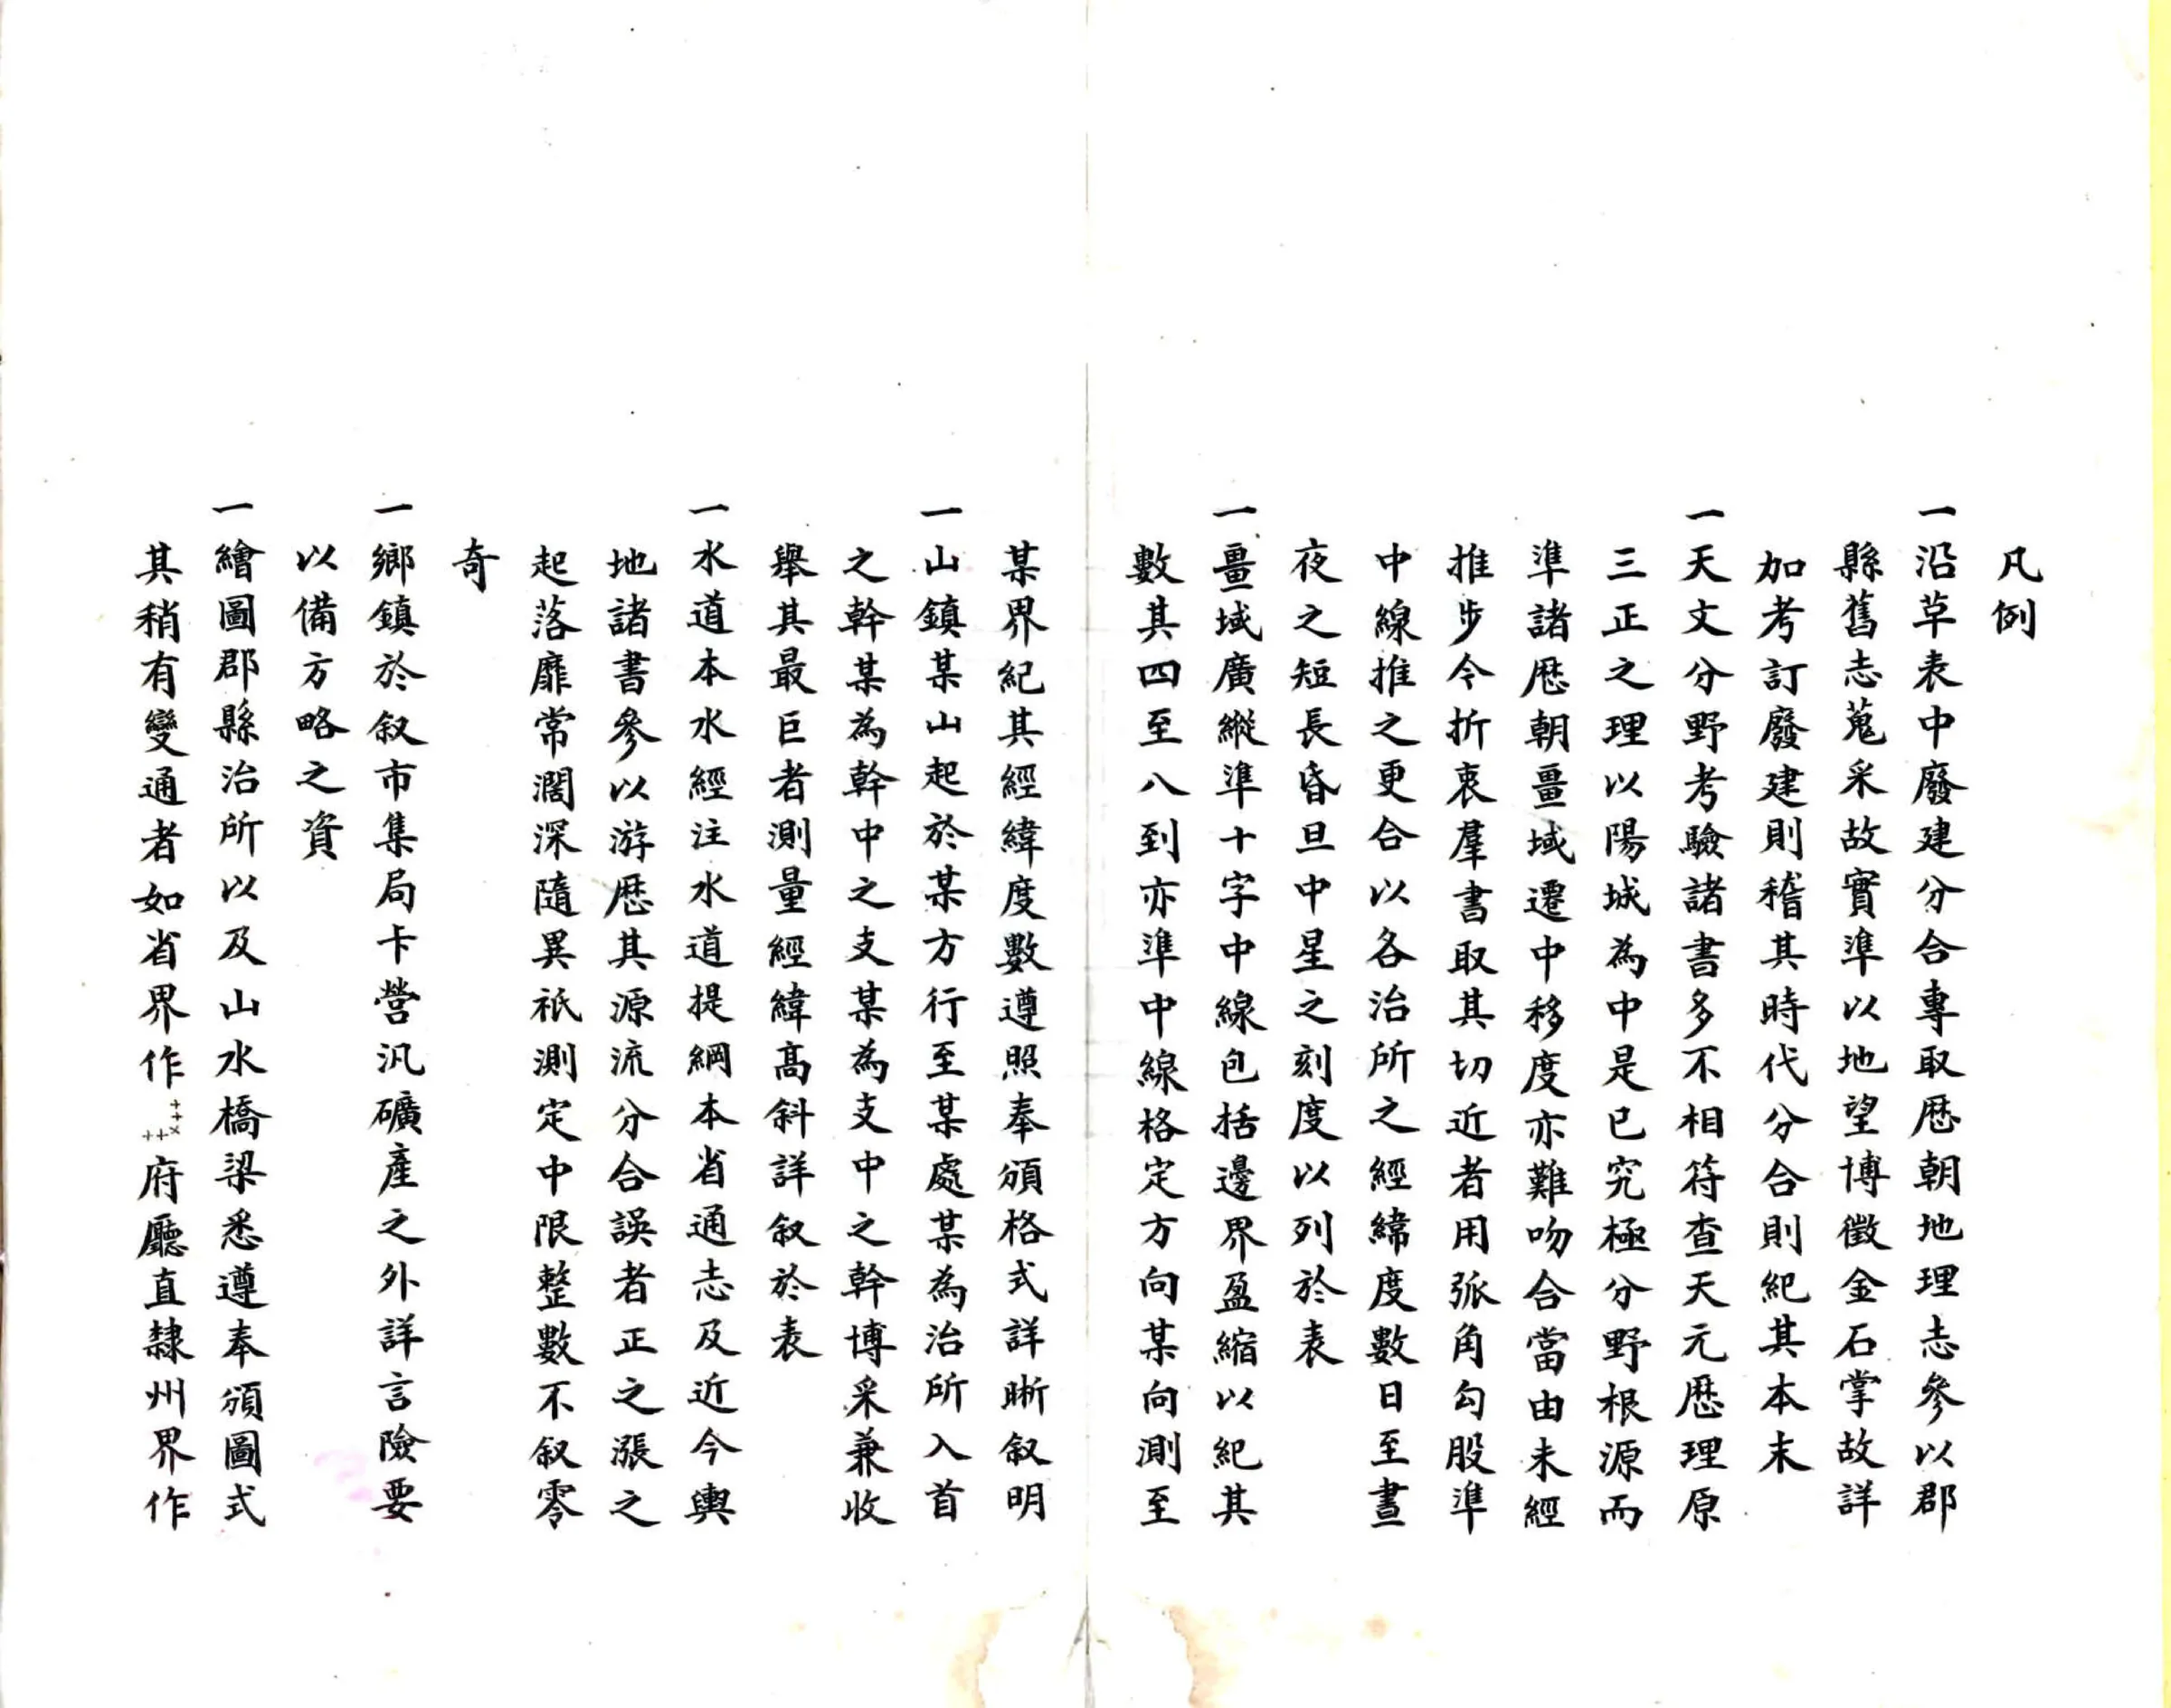 凡例
一沿革表中廢建分合專取厯朝地理志參以郡
縣舊志蒐采故實準以地望博徵金石掌故詳
加考訂廢建則稽其時代分合則紀其本末
一天文分野考驗諸書多不相符查天元厯理原
三正之理以陽城為中是已究極分野根源而
準諸厯朝畺域遷中移度亦難吻合當由未經
推步今折衷羣書取其切近者用弧角勾股準
中線推之更合以各治所之經緯度數日至晝
夜之短長昏旦中星之刻度以列於表
一畺域廣縱準十字中線包括邊界盈縮以紀其
數其四至八到亦準中線格定方向某向測至
某界紀其經緯度數遵照奉頒格式詳晰叙明
一山鎮某山起於某方行至某處某為治所入首
之幹某為幹中之支某為支中之幹博采兼收
舉其最巨者測量經緯高斜詳叙於表
一水道本水經注水道提綱本省通志及近今輿
地諸書參以游厯其源流分合誤者正之漲之
起落靡常濶深隨異祇測定中限整數不叙零
奇
一鄉鎮於叙市集局卡營汛礦產之外詳言險要
以備方略之資
一繪圖郡縣治所以及山水橋梁悉遵奉頒圖式
其稍有變通者如省界作+++++府廳直隸州界作